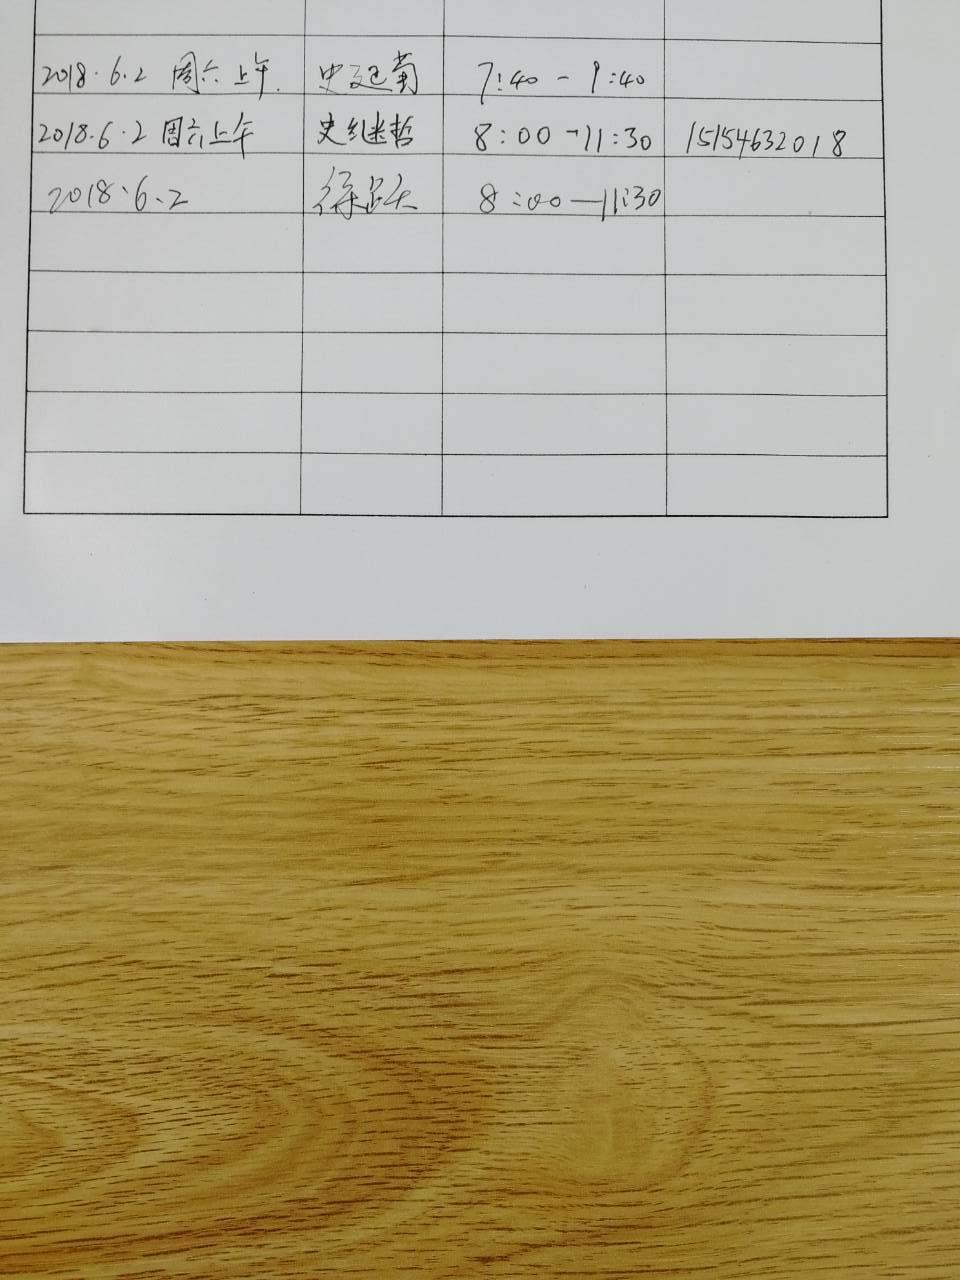 2018.6.2 周六上午. 史廷菊 7:40 - 9:40
2018.6.2 周六上午 史继哲 8:00-11:30 15154632018
2018.6.2 徐 8:00—11:30